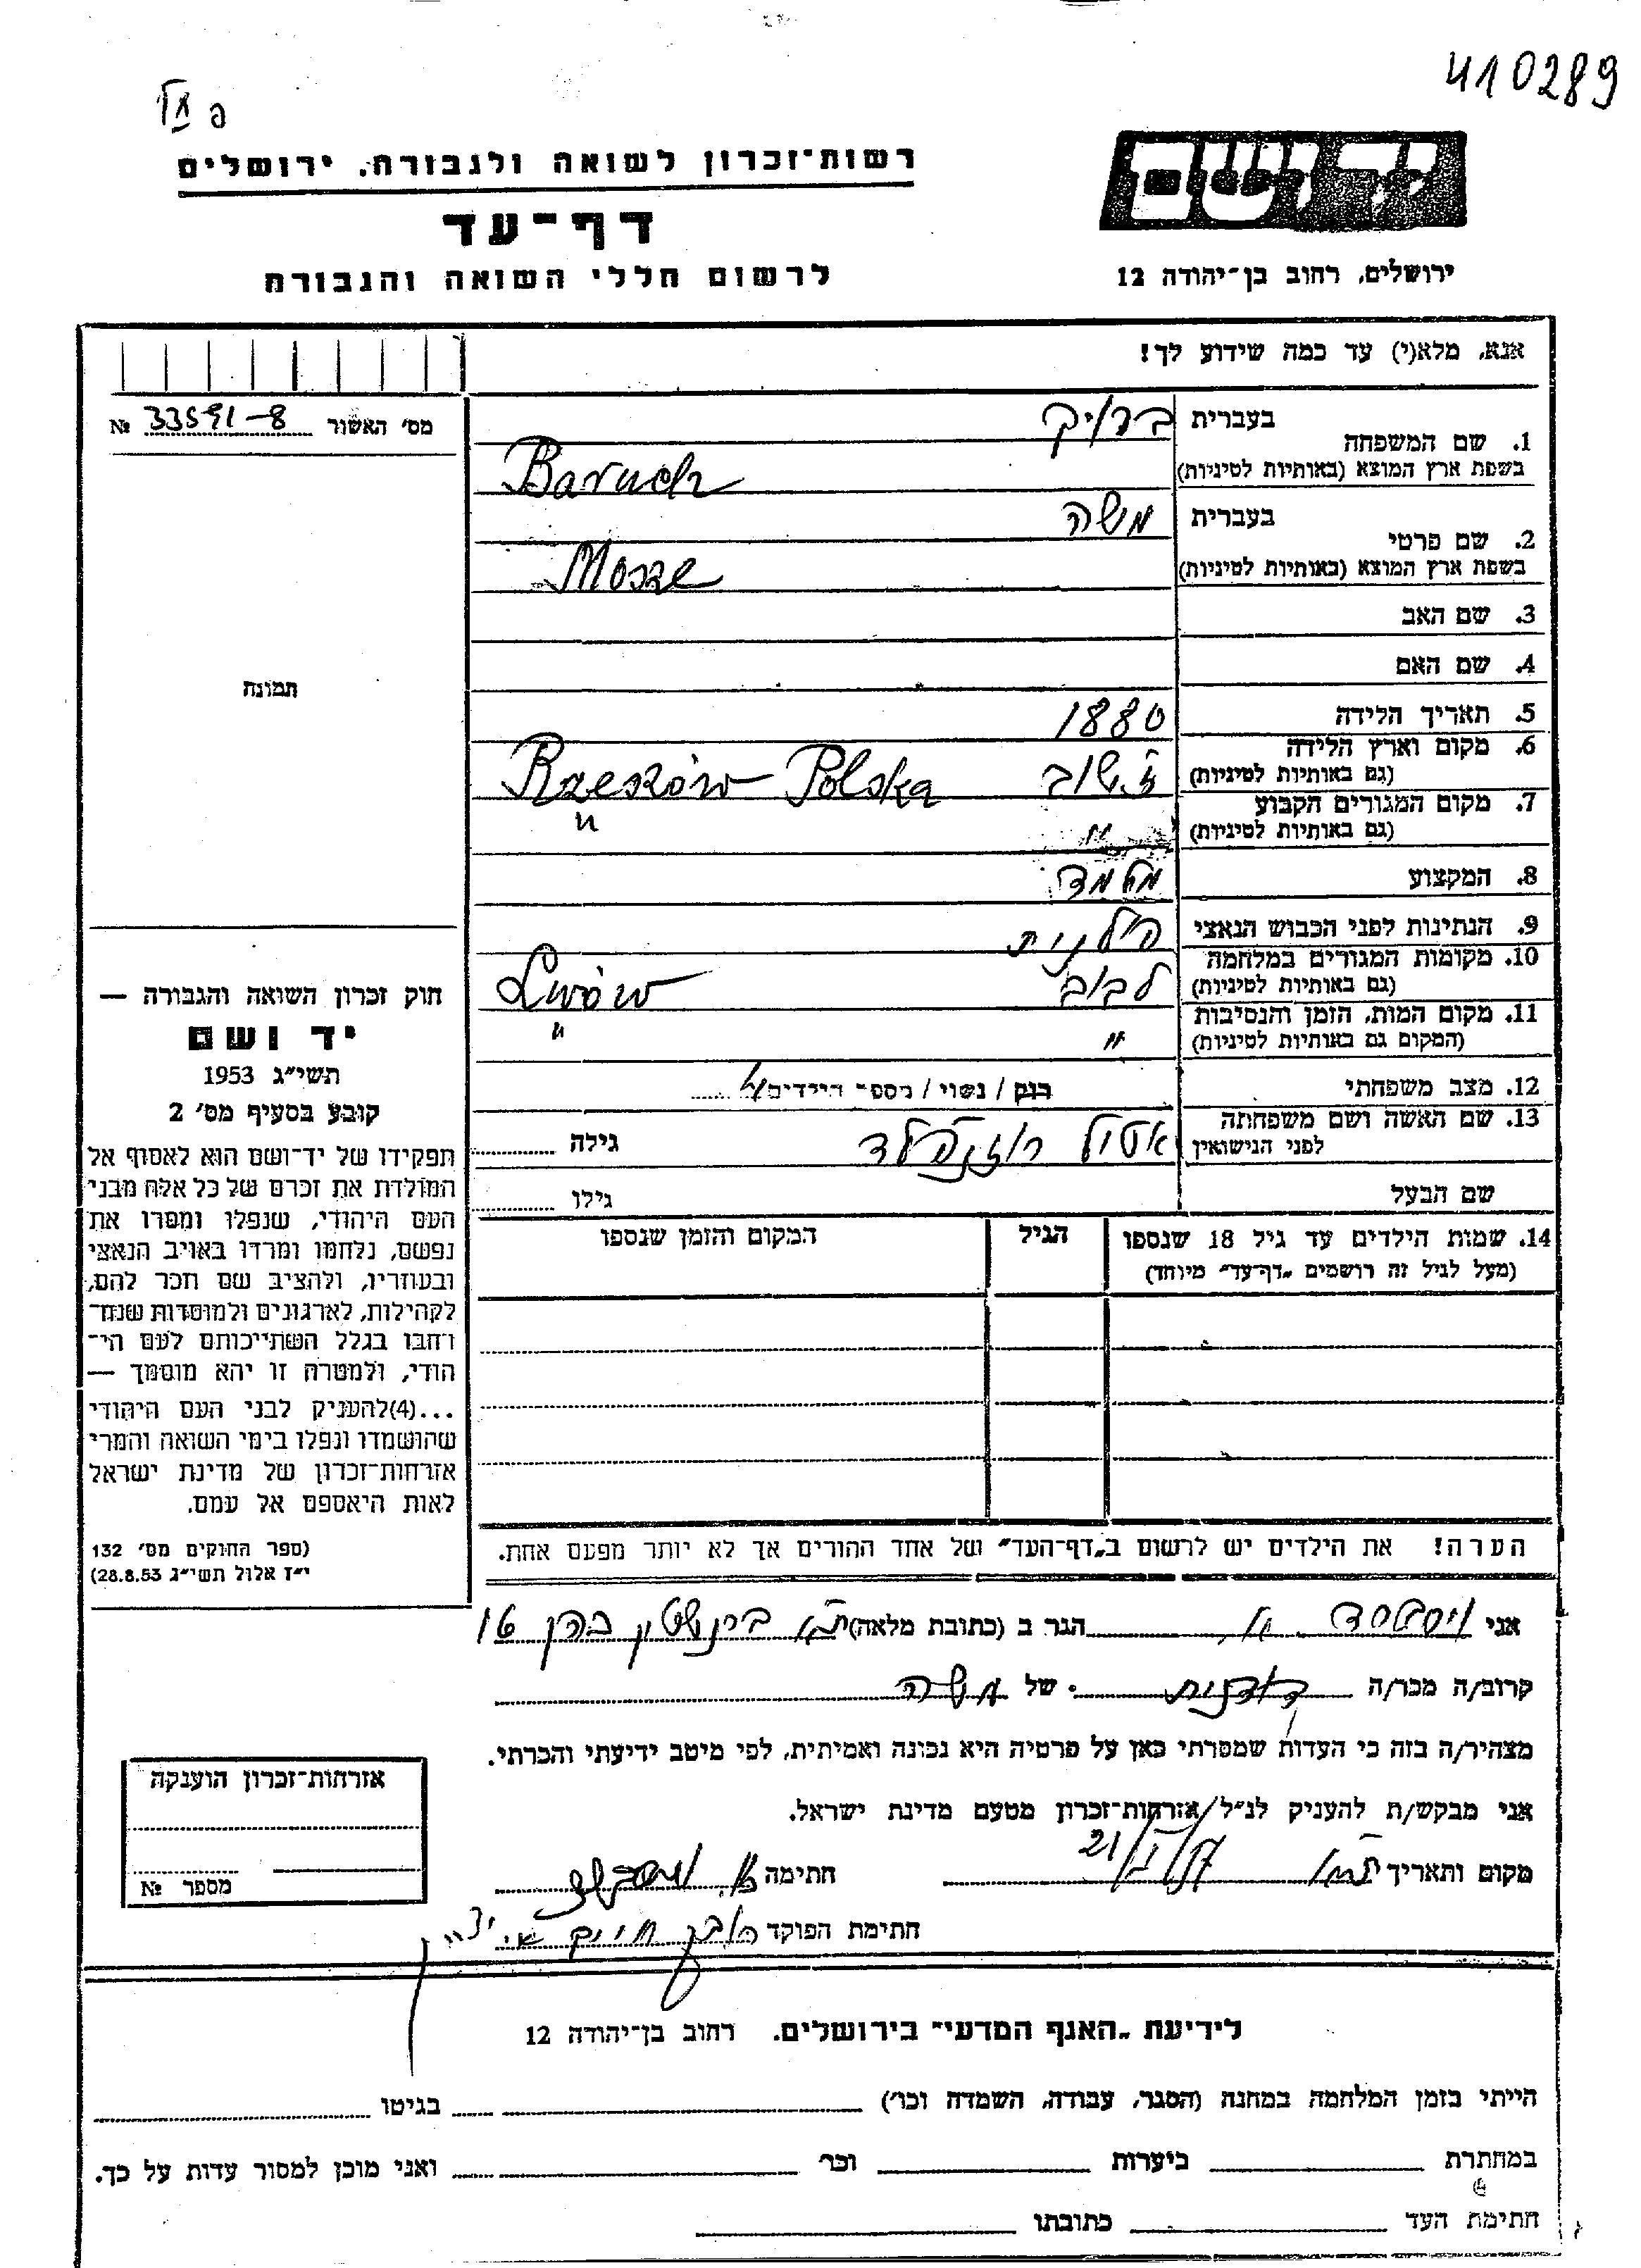 410289
רשות־זכרון לשואה ולגבורה, ירושלים
יד ושם
דף־עד
לרשום חללי השואה והגבורה
ירושלים, רחוב בן־יהודה 12
אנא, מלא(י) עד כמה שידוע לך!
מס' האשור 33591-8 №
תמונה
1. שם המשפחה בעברית ברוך
בשפת ארץ המוצא (באותיות לטיניות) Baruch
2. שם פרטי בעברית משה
בשפת ארץ המוצא (באותיות לטיניות) Mosze
3. שם האב
4. שם האם
5. תאריך הלידה 1880
6. מקום וארץ הלידה
(גם באותיות לטיניות) Rzeszów Polska
7. מקום המגורים הקבוע
(גם באותיות לטיניות) " "
8. המקצוע מלמד
9. הנתינות לפני הכבוש הנאצי פולנית
10. מקומות המגורים במלחמה
(גם באותיות לטיניות) לבוב Lwów
11. מקום המות, הזמן והנסיבות
(המקום גם באותיות לטיניות) " "
12. מצב משפחתי רוק / נשוי / מספר הילדים
13. שם האשה ושם משפחתה
לפני הנישואין רוזנפלד גילה
שם הבעל גילו
14. שמות הילדים עד גיל 18 שנספו הגיל המקום והזמן שנספו
(מעל לגיל זה רושמים „דף־עד" מיוחד)
הערה! את הילדים יש לרשום ב„דף־העד" של אחד ההורים אך לא יותר מפעם אחת.
חוק זכרון השואה והגבורה —
יד ושם
תשי"ג 1953
קובע בסעיף מס' 2
תפקידו של יד־ושם הוא לאסוף אל
המולדת את זכרם של כל אלה מבני
העם היהודי, שנפלו ומסרו את
נפשם, נלחמו ומרדו באויב הנאצי
ובעוזריו, ולהציב שם וזכר להם,
לקהילות, לארגונים ולמוסדות שנח־
רחבו בגלל השתייכותם לעם הי־
הודי, ולמטרה זו יהא מוסמך —
...(4)להעניק לבני העם היהודי
שהושמדו ונפלו בימי השואה והמרי
אזרחות־זכרון של מדינת ישראל
לאות היאספם אל עמם.
(ספר החוקים מס' 132
י"ז אלול תשי"ג 28.8.53)
אני הגר ב (כתובת מלאה) 16
קרוב/ה מכר/ה של משה
מצהיר/ה בזה כי העדות שמסרתי כאן על פרטיה היא נכונה ואמיתית, לפי מיטב ידיעתי והכרתי.
אני מבקש/ת להעניק לנ"ל אזרחות־זכרון מטעם מדינת ישראל.
מקום ותאריך חתימה
חתימת הפוקד
אזרחות־זכרון הוענקה
מספר №
לידיעת „האגף המדעי" בירושלים, רחוב בן־יהודה 12
הייתי בזמן המלחמה במחנה (הסגר, עבודה, השמדה וכו') בגיטו
במחתרת ביערות וכו' ואני מוכן למסור עדות על כך.
חתימת העד כתובתו